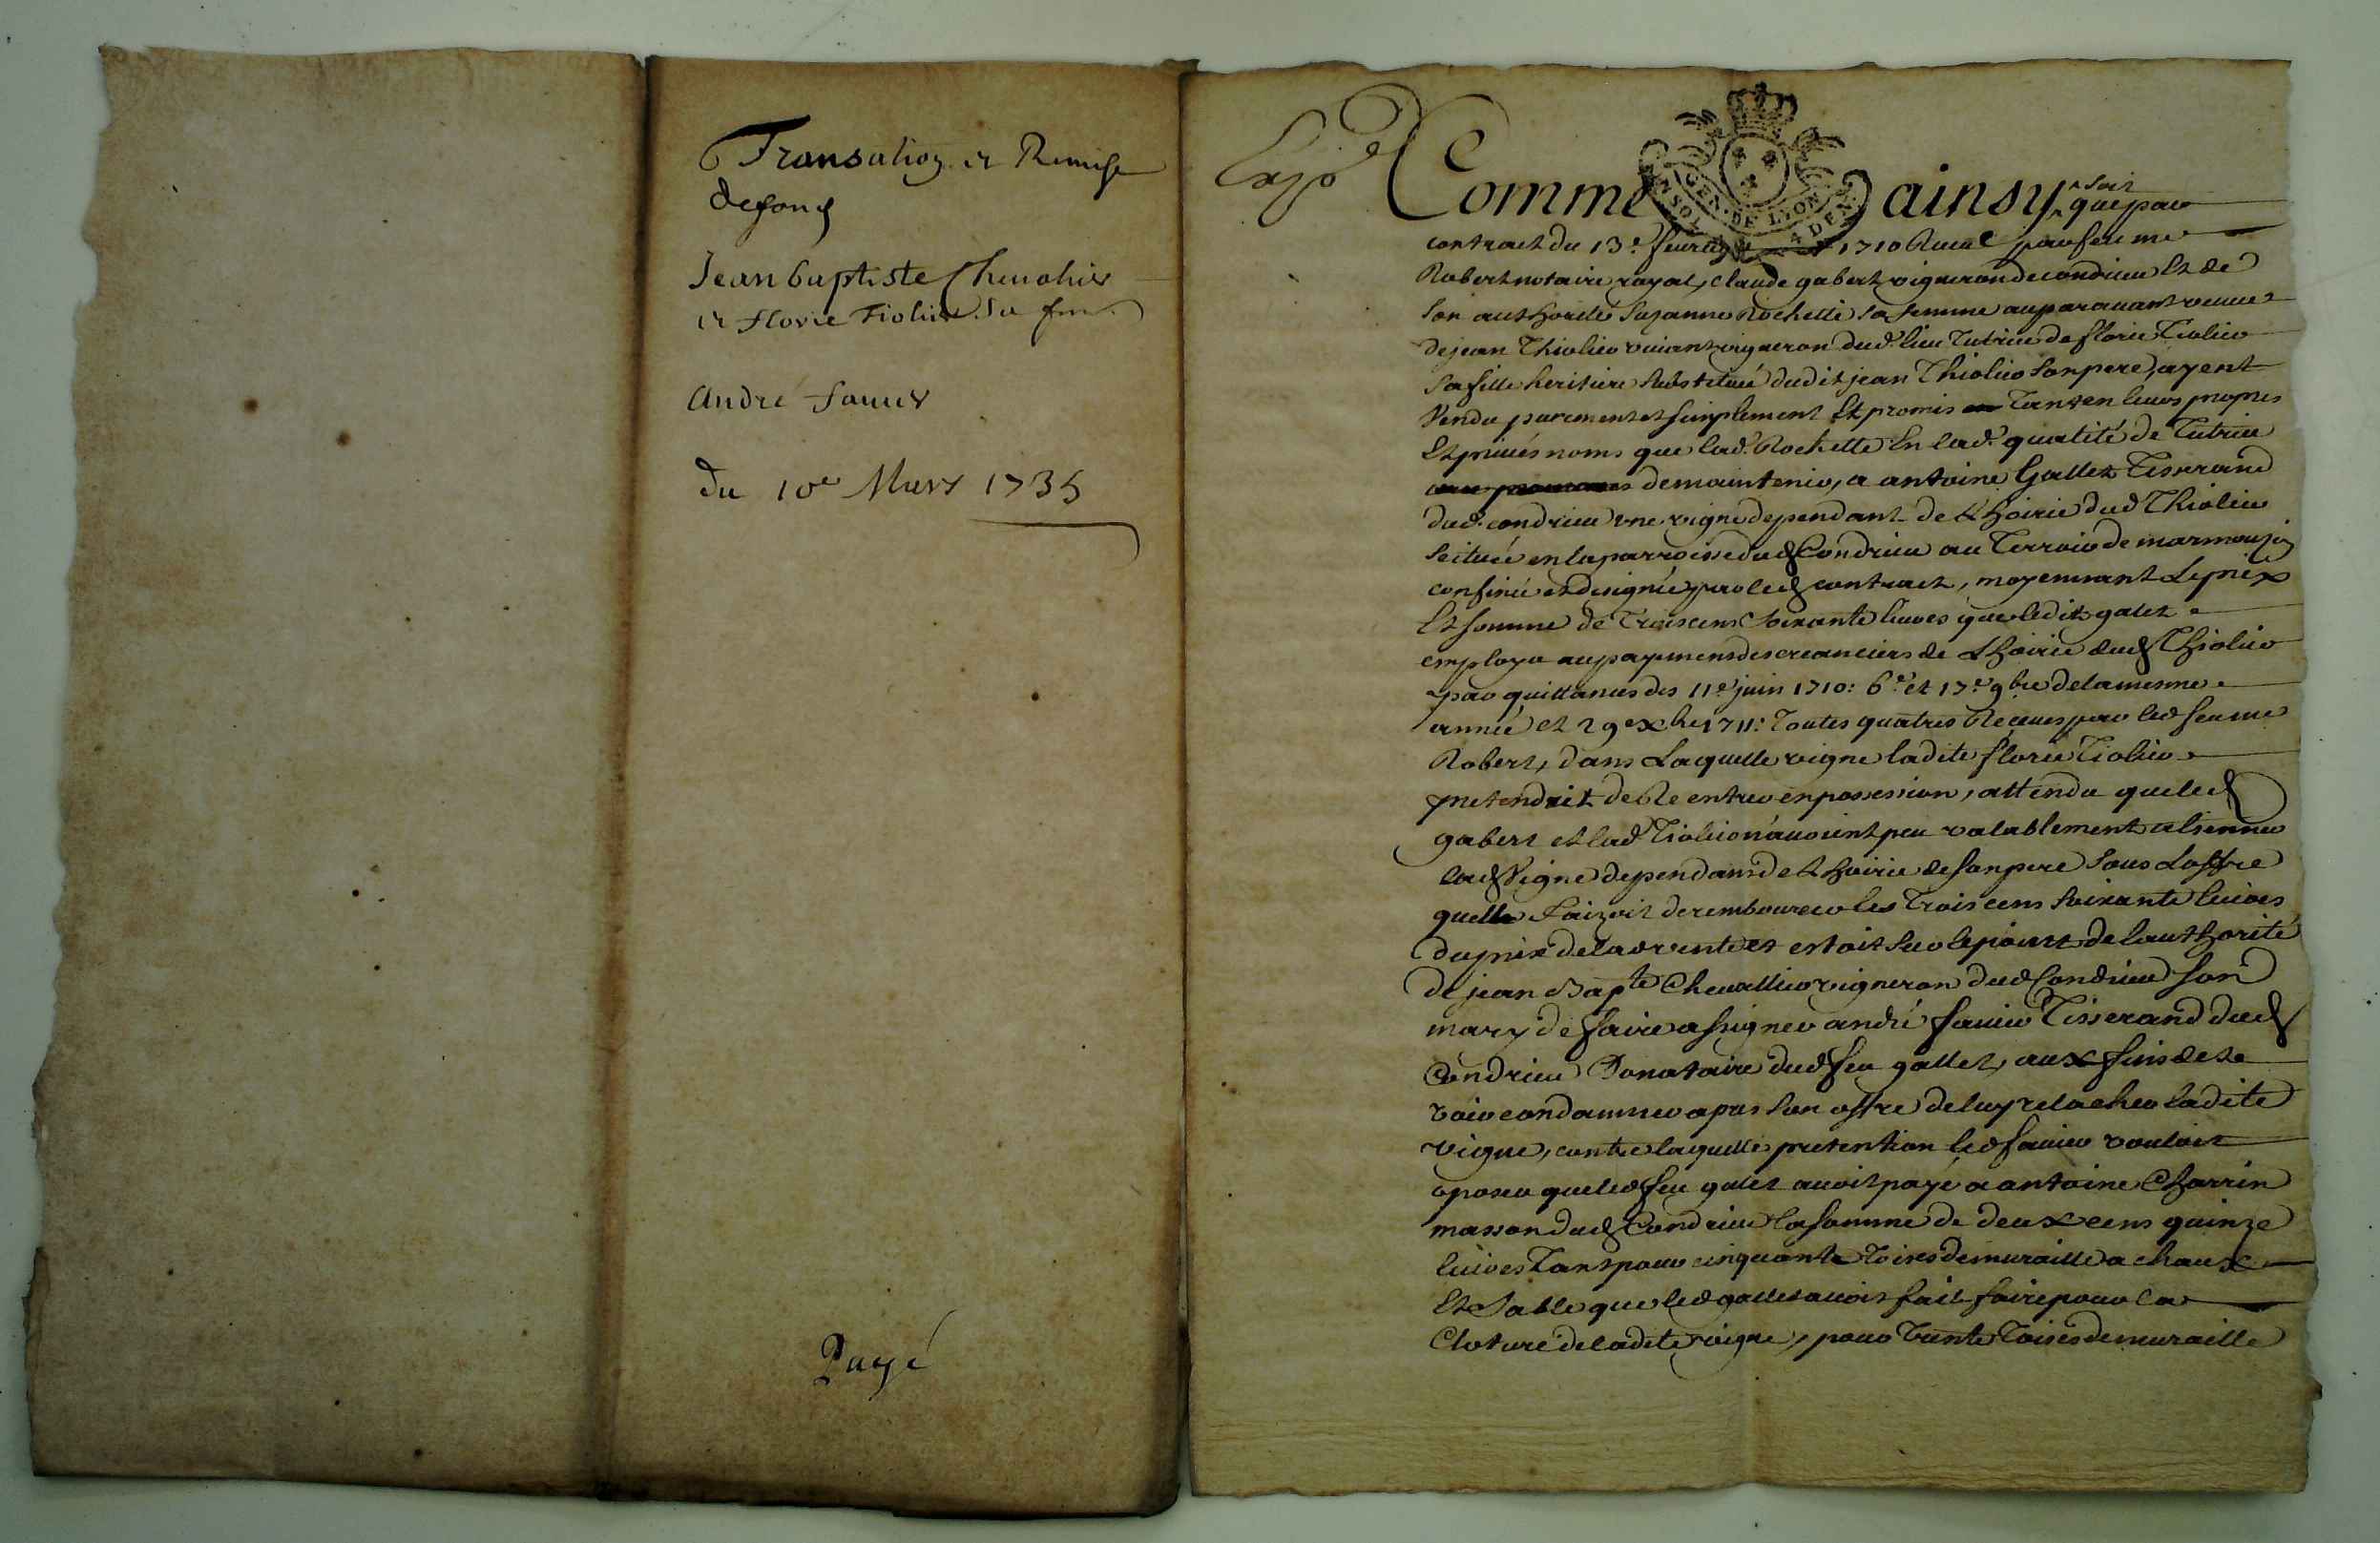 Transation et Remise
de fond
Jean baptiste Chevalier
et Florie Tiolier sa fem.
André favier
du 10e Mars 1735
Payé
Exp.e
GEN. DE LYON
SOL 4 DEN.
soit
Comme ainsy que par
contract du 13.e feurier 1710 Receu par feu me
Robert notaire royal, claude gabert vigneron de condrieu Et de
son authorité Suzanne Rochette sa femme auparavant veuve
de jean Thiolier vivant vigneron dud. lieu Tutrice de florie Tiolier
sa fille heritiere substituée dudit jean Thiolier son pere, ayent
Vendu purement et simplement Et promis en Tant en leurs propres
Et privés noms que lad. Rochette En lad. qualité de Tutrice
de maintenir, a antoine Gallet Tisserand
dud. condrieu vne vigne dependant de L'hoirie dud Thiolier
scituée en la parroisse dud Condrieu au Terroir de marmouzin
confinée et designée par led contract, moyennant Le prix
Et somme de Trois cens soixante livres que ledit galet
employa au payement des creanciers de Lhoirie dud Thiolier
par quittances des 11.e juin 1710: 6.e et 17.e 9bre de la mesme
année et 29e xbre 1711: Toutes quatres Receues par led feu me
Robert, dans Laquelle vigne ladite florie Tiolier
pretendoit de Re entrer en possession, attendu que led
gabert et lad Tiolier n'avoient peu valablement alienner
lad Vigne dependant de L hoirie de son pere sous Loffre
quelle Faizoit de rembourcer les Trois cens soixante livres
du prix de lad vente et estoit sur le point de lauthorité
de jean Bapte Chevallier vigneron dud Condrieu son
mary de faire assigner andré favier Tisserand dud
Condrieu Donataire dud feu gallet, aux fins de se
voir condamner apres son offre de luy relacher ladite
vigne, contre laquelle pretention led favier vouloit
oposer que led feu galet avoit payé a antoine Charrin
masson dud Condrieu la somme de deux cens quinze
livres Tant pour cinquante Toises de muraille a chaux
Et Sable que led gallet avoit fait faire pour la
Cloture de ladite vigne, pour Trente Toises de muraille